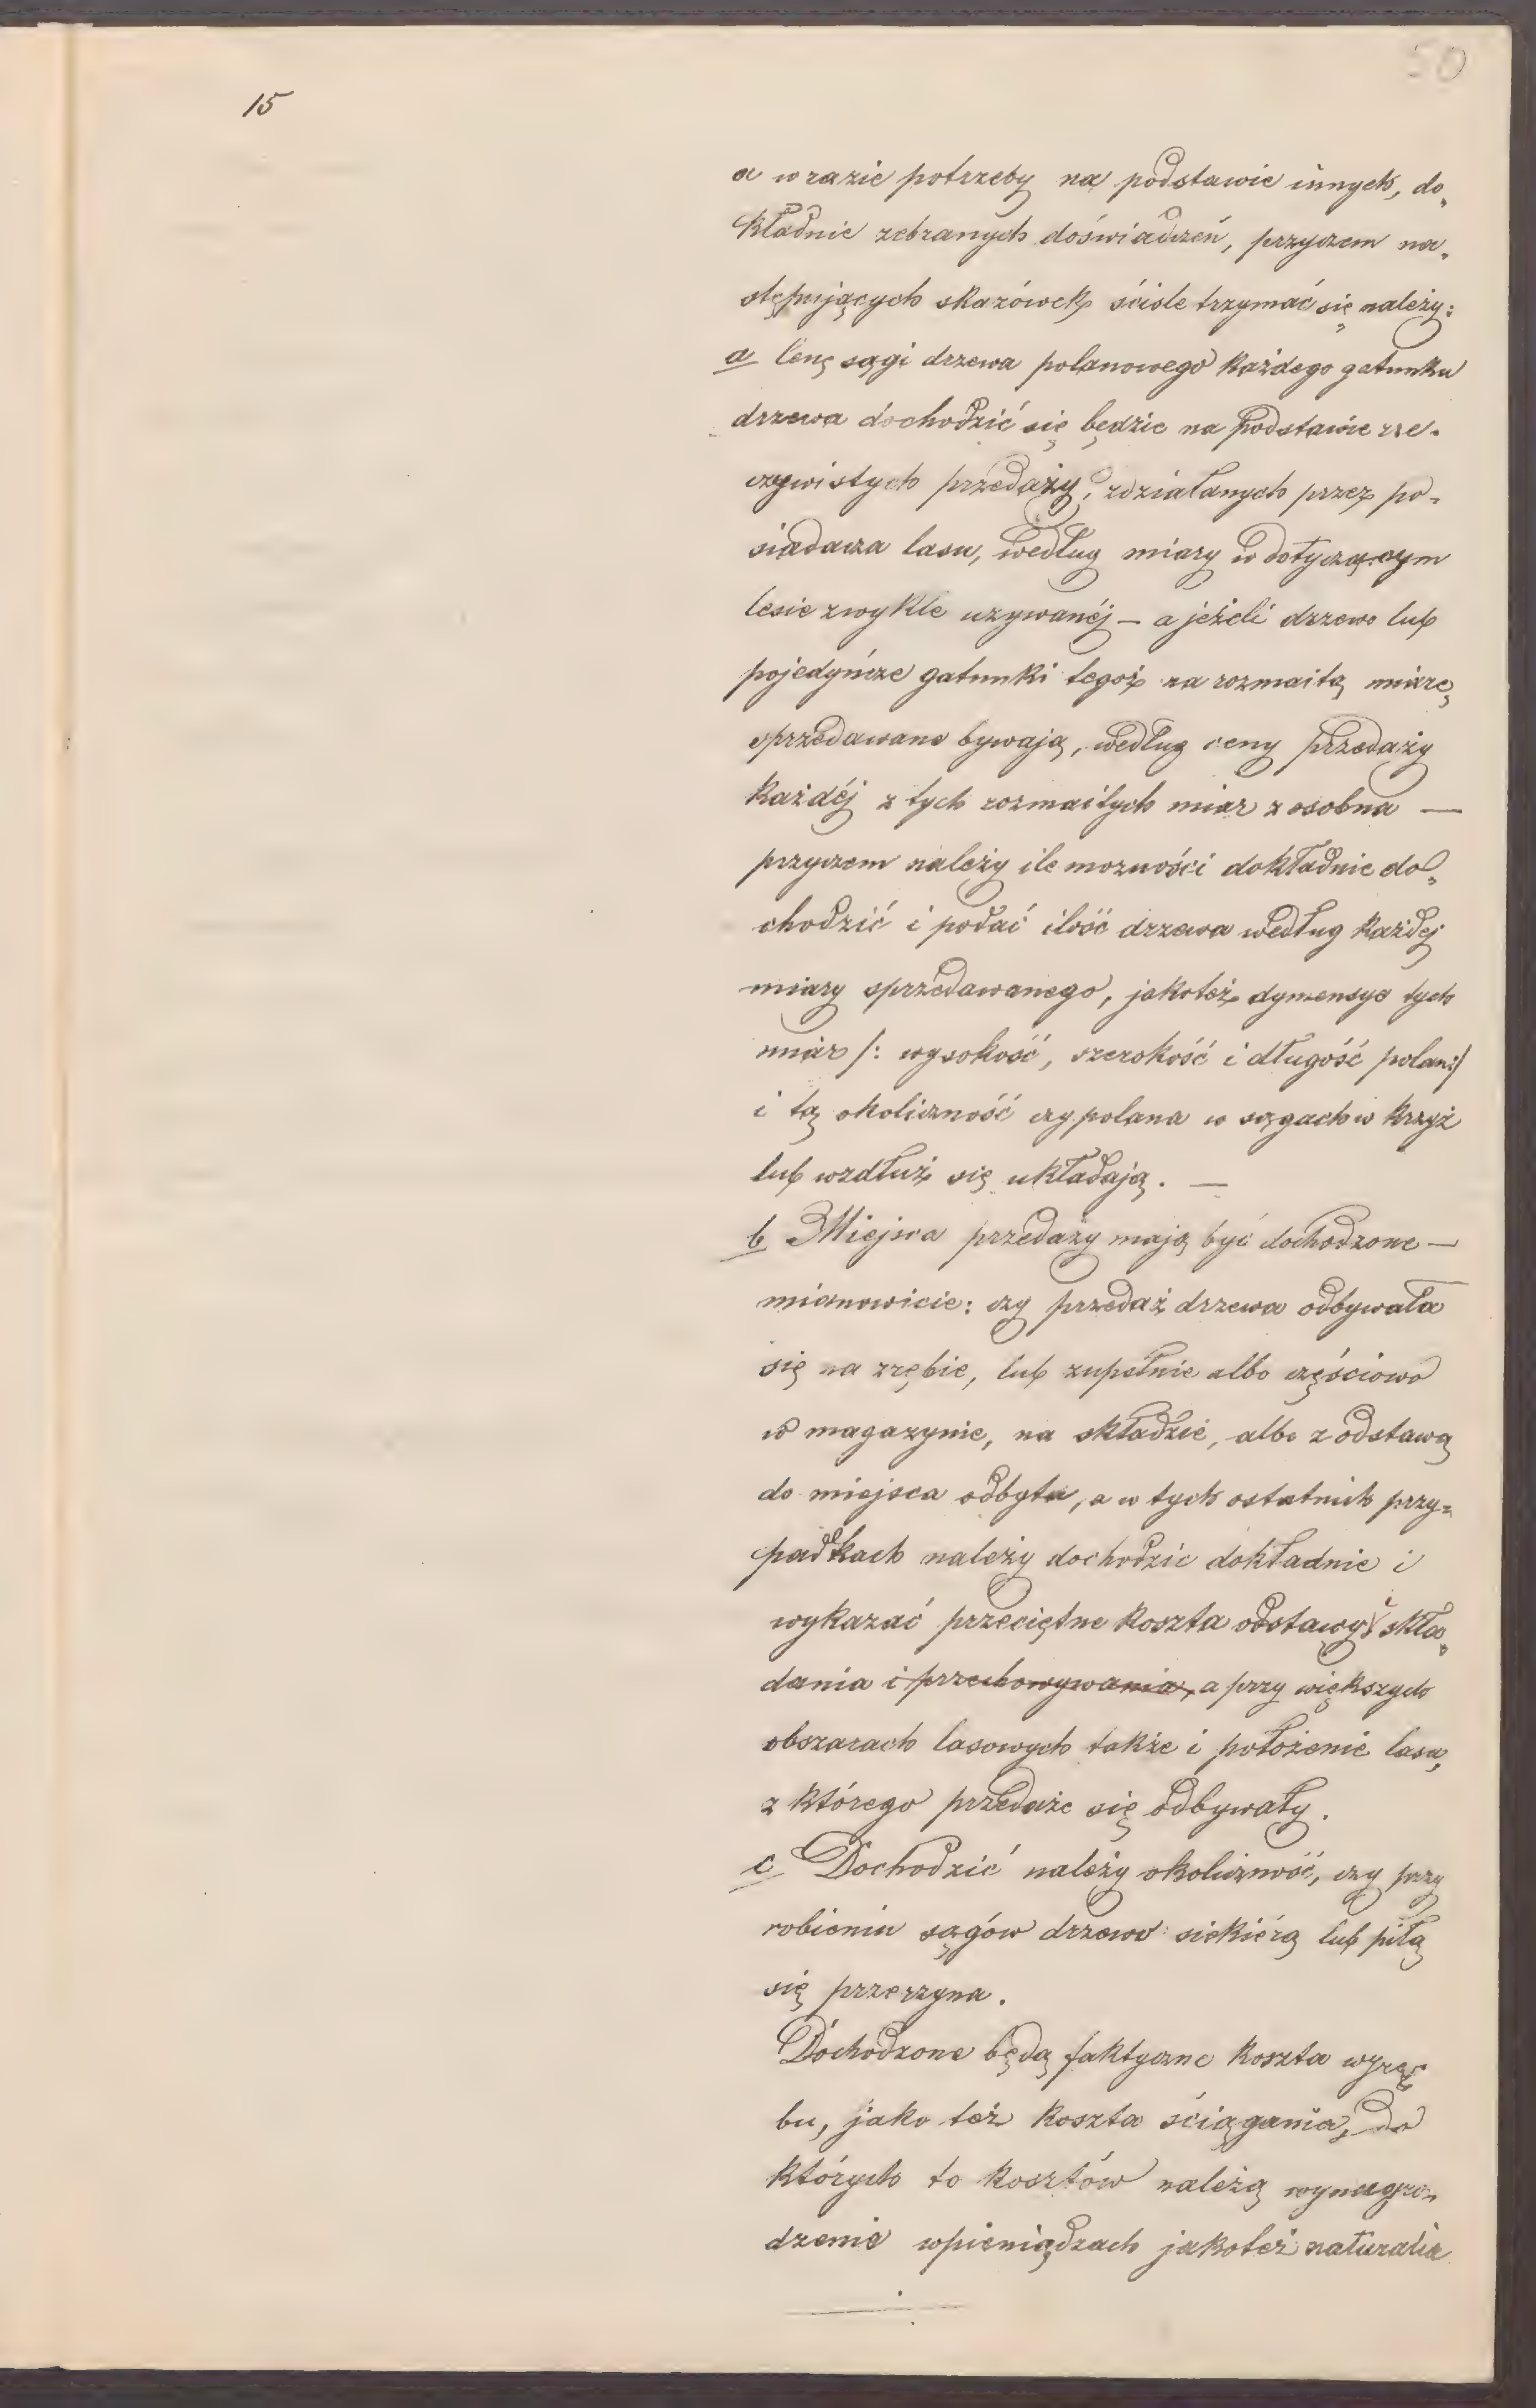 50
15
a w razie potrzeby na podstawie innych, do„
kładnie zebranych doświadczeń, przyczem na„
stępujących skazówek ściśle trzymać się należy:
a Cenę sągi drzewa polanowego każdego gatunku
drzewa dochodzić się będzie na podstawie rze-
czywistych przedaży, zdziałanych przez po-
siadacza lasu, według miary w dotyczącym
lesie zwykle używanéj – a jeżeli drzewo lub
pojedyńcze gatunki tegoż na rozmaitą miarę
sprzedawane bywają, według ceny przedaży
każdéj z tych rozmaitych miar z osobna —
przyczem należy ile możności dokładnie do„
chodzić i podać ilość drzewa według każdej
miary sprzedawanego, jakoteż dymensye tych
miar /: wysokość, szerokość i długość polan:/
i tą okoliczność czy polana w sągach w krzyż
lub wzdłuż się układają. —
b Miejsca przedaży mają być dochodzone —
mianowicie: czy przedaż drzewa odbywała
się na zrębie, lub zupełnie albo częściowo
w magazynie, na składzie, albo z odstawą
do miejsca odbytu, a w tych ostatnich przy„
padkach należy dochodzić dokładnie i
wykazać przeciętne koszta odstawy i skła„
dania i przechowywania, a przy większych
obszarach lasowych także i położenie lasu,
z którego przedaże się odbywały.
c Dochodzić należy okoliczność, czy przy
robieniu sągów drzewo siekiérą lub piłą
się przerzyna.
Dochodzone będą faktyczne koszta wyrę„
bu, jako też koszta ściągania, do
których to kosztów należą wynagro„
dzenie w pieniądzach jakoteż naturalia